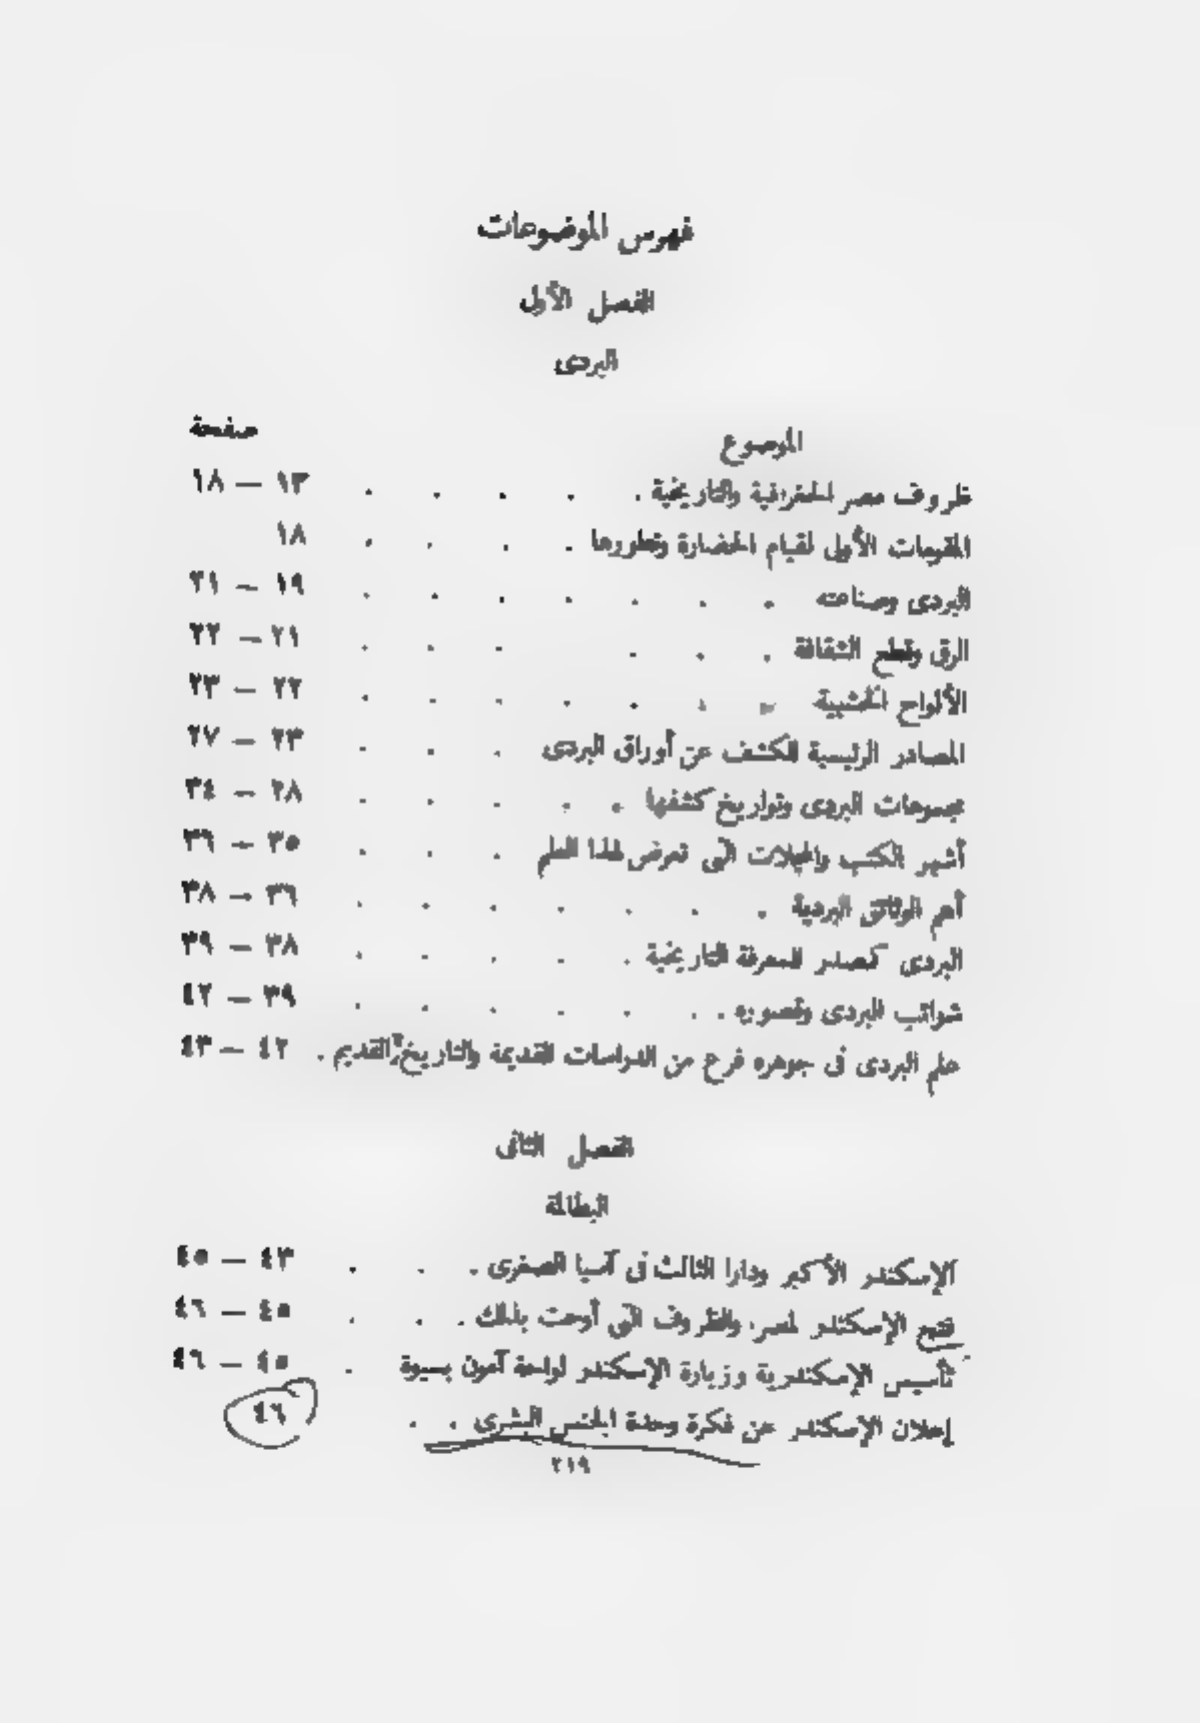 فهرس الموضوعات
الفصل الأول
البردى
الموضوع صفحة
ظروف مصر الجغرافية والتاريخية . . . . . ١٣ — ١٨
المقومات الأولى لقيام الحضارة وتطورها . . . . ١٨
البردى وصناعته . . . . . . . ١٩ — ٢١
الرق وقطع الشقافة . . . . . . ٢١ — ٢٢
الألواح الخشبية . . . . . . . ٢٢ — ٢٣
المصادر الرئيسية للكشف عن أوراق البردى . . . ٢٣ — ٢٧
مجموعات البردى وتواريخ كشفها . . . . . ٢٨ — ٣٤
أشهر الكتب والمجلات التى تعرض لهذا العلم . . . ٣٥ — ٣٦
أهم الوثائق البردية . . . . . . . ٣٦ — ٣٨
البردى كمصدر للمعرفة التاريخية . . . . . ٣٨ — ٣٩
شوائب البردى وقصوره . . . . . . . ٣٩ — ٤٢
علم البردى فى جوهره فرع من الدراسات القديمة والتاريخ القديم . ٤٢ — ٤٣
الفصل الثانى
البطالمة
الإسكندر الأكبر ودارا الثالث فى آسيا الصغرى . . . ٤٣ — ٤٥
فتح الإسكندر لمصر والظروف التى أوحت بذلك . . . ٤٥ — ٤٦
تأسيس الإسكندرية وزيارة الإسكندر لواحة آمون بسيوة . ٤٥ — ٤٦
إعلان الإسكندر عن فكرة وحدة الجنس البشرى . . ٤٦
٢١٩